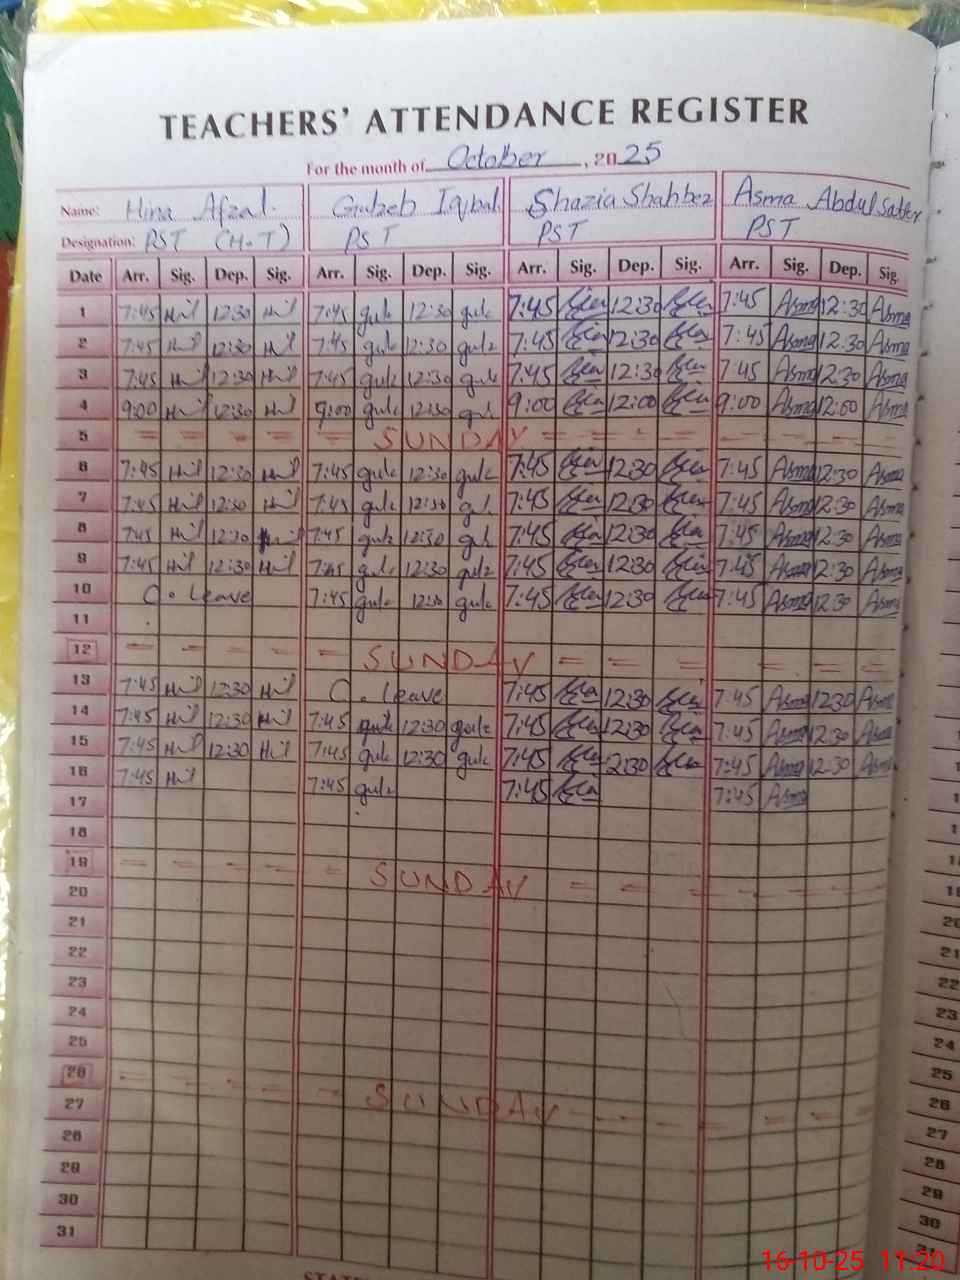 TEACHERS' ATTENDANCE REGISTER
For the month of October, 2025
Name: Hina Afzal. Gulzeb Iqbal Shazia Shahbez Asma Abdul Satter
Designation: PST (H.T) PST PST PST
Date Arr. Sig. Dep. Sig. Arr. Sig. Dep. Sig. Arr. Sig. Dep. Sig. Arr. Sig. Dep. Sig.
1 7:45 12:30 7:45 gulz 12:30 gulz 7:45 12:30 7:45 Asma 12:30 Asma
2 7:45 12:30 7:45 gulz 12:30 gulz 7:45 12:30 7:45 Asma 12:30 Asma
3 7:45 12:30 7:45 gulz 12:30 gulz 7:45 12:30 7:45 Asma 12:30 Asma
4 9:00 12:30 9:00 gulz 12:30 gul 9:00 12:00 9:00 Asma 12:00 Asma
5 SUNDAY
6 7:45 12:30 7:45 gulz 12:30 gulz 7:45 12:30 7:45 Asma 12:30 Asma
7 7:45 12:30 7:45 gulz 12:30 gul 7:45 12:30 7:45 Asma 12:30 Asma
8 7:45 12:30 7:45 gulz 12:30 gul 7:45 12:30 7:45 Asma 12:30 Asma
9 7:45 12:30 7:45 gulz 12:30 gulz 7:45 12:30 7:45 Asma 12:30 Asma
10 C. Leave 7:45 gulz 12:30 gulz 7:45 12:30 7:45 Asma 12:30 Asma
11
12 SUNDAY
13 7:45 12:30 C. Leave 7:45 12:30 7:45 Asma 12:30 Asma
14 7:45 12:30 7:45 gulz 12:30 gulz 7:45 12:30 7:45 Asma 12:30 Asma
15 7:45 12:30 7:45 gulz 12:30 gulz 7:45 12:30 7:45 Asma 12:30 Asma
16 7:45 7:45 gulz 7:45 7:45 Asma
17
18
19 SUNDAY
20
21
22
23
24
25
26 SUNDAY
27
28
29
30
31
16-10-25 11:20